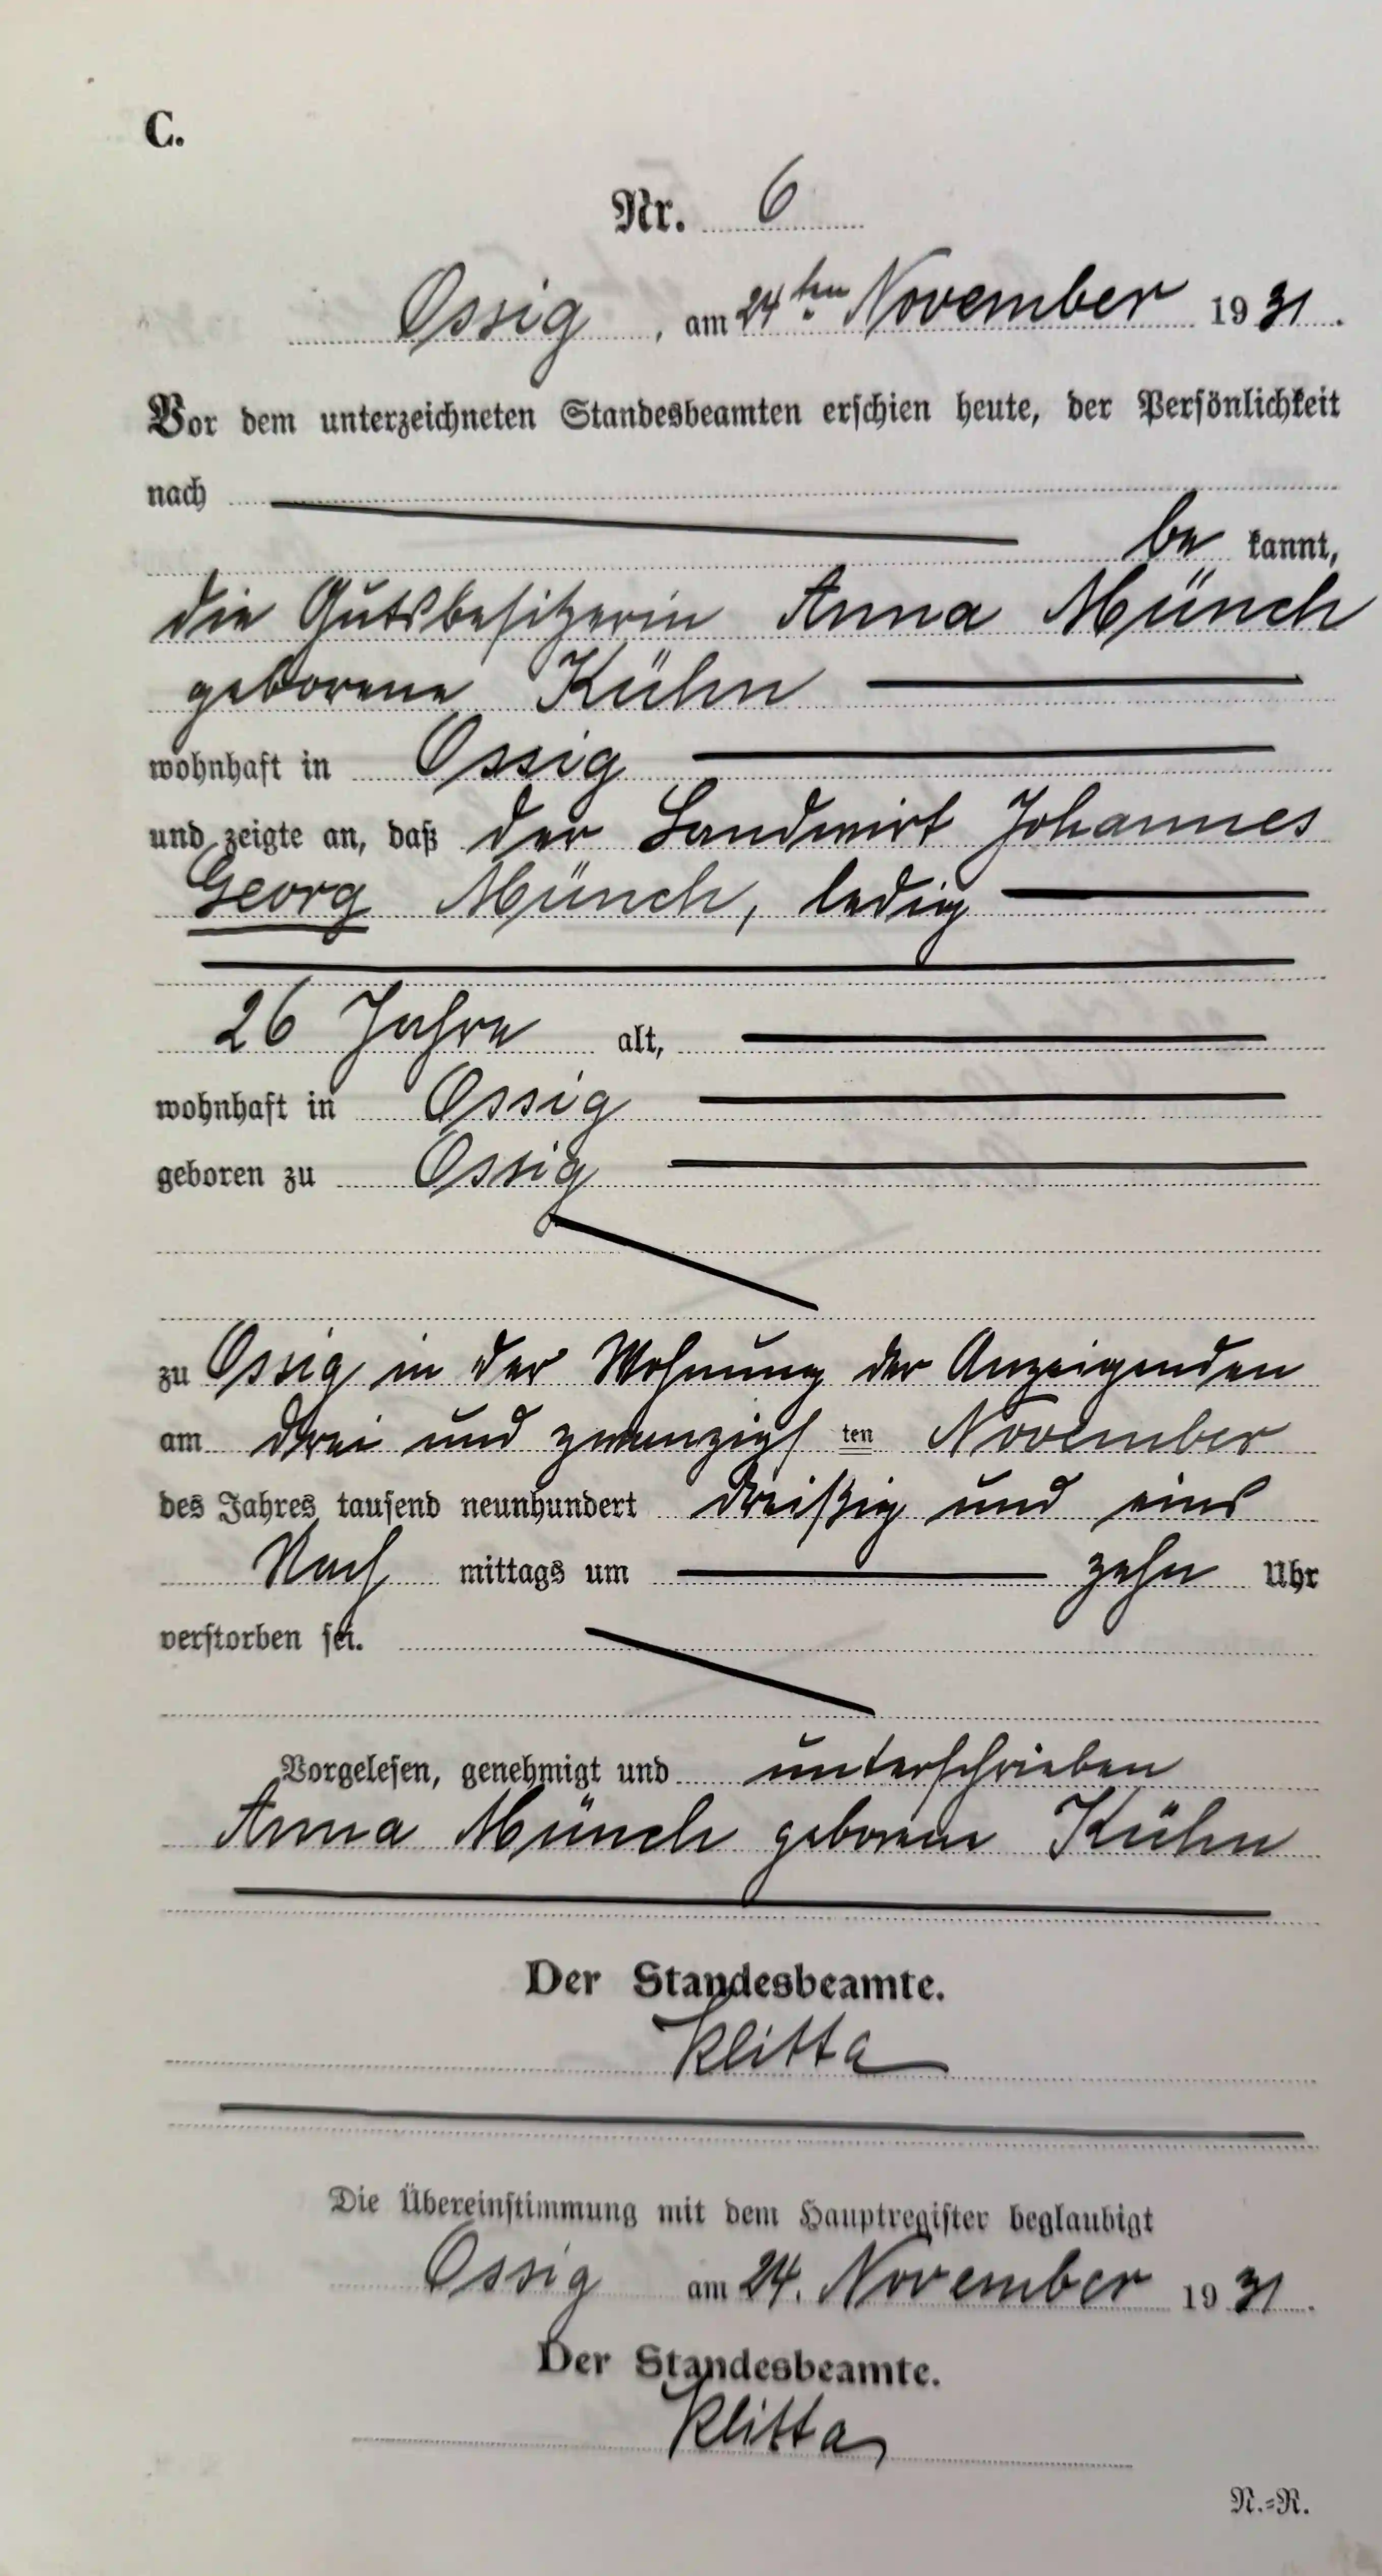 C.
Nr. 6
Ossig, am 24ten November 1931.
Vor dem unterzeichneten Standesbeamten erschien heute, der Persönlichkeit
nach
be kannt,
die Gutsbesitzerin Anna Münch
geborene Kühn
wohnhaft in Ossig
und zeigte an, daß der Landwirt Johannes
Georg Münch, ledig
26 Jahre alt,
wohnhaft in Ossig
geboren zu Ossig
zu Ossig in der Wohnung der Anzeigenden
am drei und zwanzigsten November
des Jahres tausend neunhundert dreißig und eins
Nach mittags um zehn Uhr
verstorben sei.
Vorgelesen, genehmigt und unterschrieben
Anna Münch geborene Kühn
Der Standesbeamte.
Klitta
Die Übereinstimmung mit dem Hauptregister beglaubigt
Ossig am 24. November 1931.
Der Standesbeamte.
Klitta
N.=R.